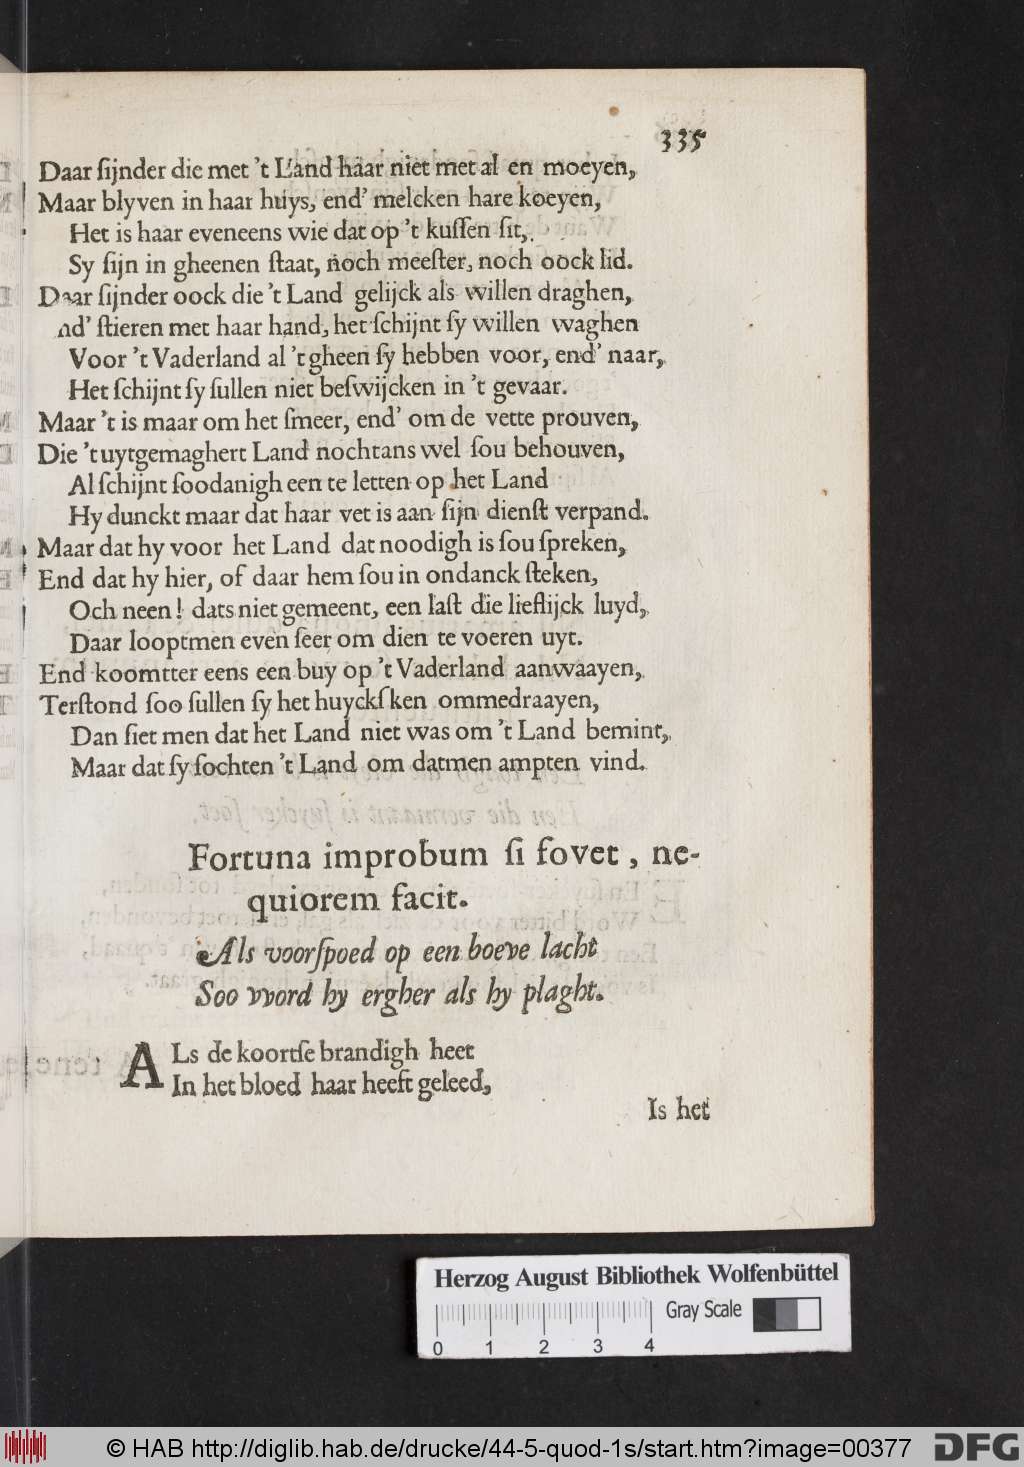 335
Daar ſijnder die met 't Land haar niet met al en moeyen,
Maar blyven in haar huys, end' melcken hare koeyen,
Het is haar eveneens wie dat op 't kuſſen ſit,
Sy ſijn in gheenen ſtaat, noch meeſter, noch oock lid.
Daar ſijnder oock die 't Land gelijck als willen draghen,
nd' ſtieren met haar hand, het ſchijnt ſy willen waghen
Voor 't Vaderland al 't gheen ſy hebben voor, end' naar,
Het ſchijnt ſy ſullen niet beſwijcken in 't gevaar.
Maar 't is maar om het ſmeer, end' om de vette prouven,
Die 't uytgemaghert Land nochtans wel ſou behouven,
Al ſchijnt ſoodanigh een te letten op het Land
Hy dunckt maar dat haar vet is aan ſijn dienſt verpand.
Maar dat hy voor het Land dat noodigh is ſou ſpreken,
End dat hy hier, of daar hem ſou in ondanck ſteken,
Och neen! dats niet gemeent, een laſt die lieflijck luyd,
Daar looptmen even ſeer om dien te voeren uyt.
End koomtter eens een buy op 't Vaderland aanwaayen,
Terſtond ſoo ſullen ſy het huyckſken ommedraayen,
Dan ſiet men dat het Land niet was om 't Land bemint,
Maar dat ſy ſochten 't Land om datmen ampten vind.
Fortuna improbum ſi fovet, ne-
quiorem facit.
Als voorſpoed op een boeve lacht
Soo vvord hy ergher als hy plaght.
ALs de koortſe brandigh heet
In het bloed haar heeft geleed,
Is het
Herzog August Bibliothek Wolfenbüttel
Gray Scale
0 1 2 3 4
© HAB http://diglib.hab.de/drucke/44-5-quod-1s/start.htm?image=00377
DFG